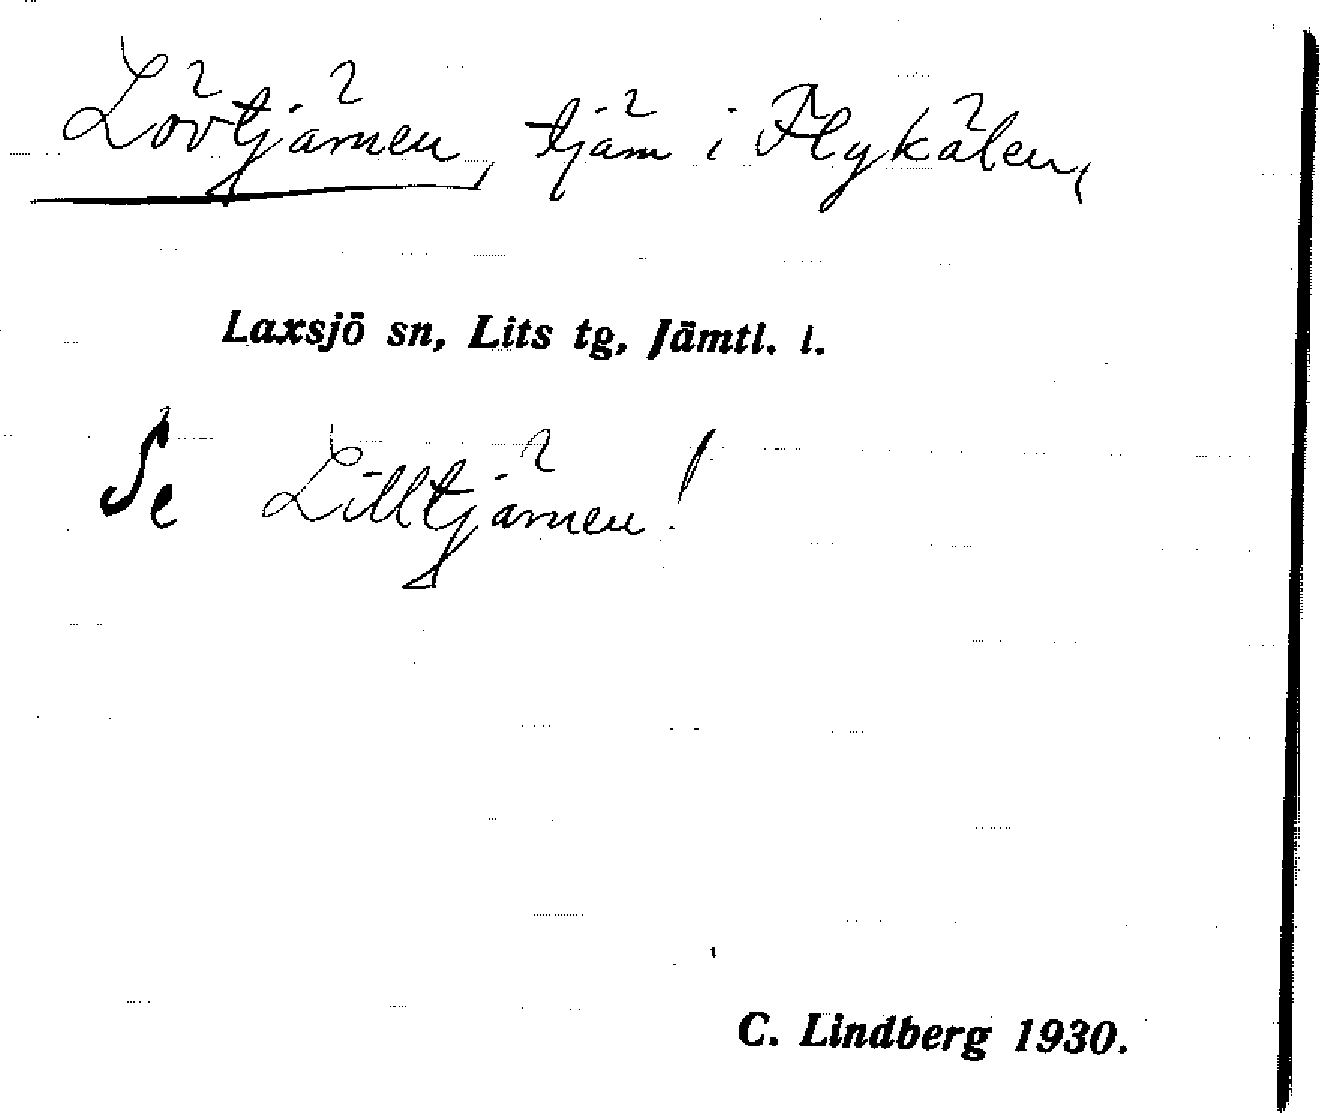 Lövtjärnen, tjärn i Flykälen,
Laxsjö sn, Lits tg, Jämtl. l.
Se Lilltjärnen!
C. Lindberg 1930.